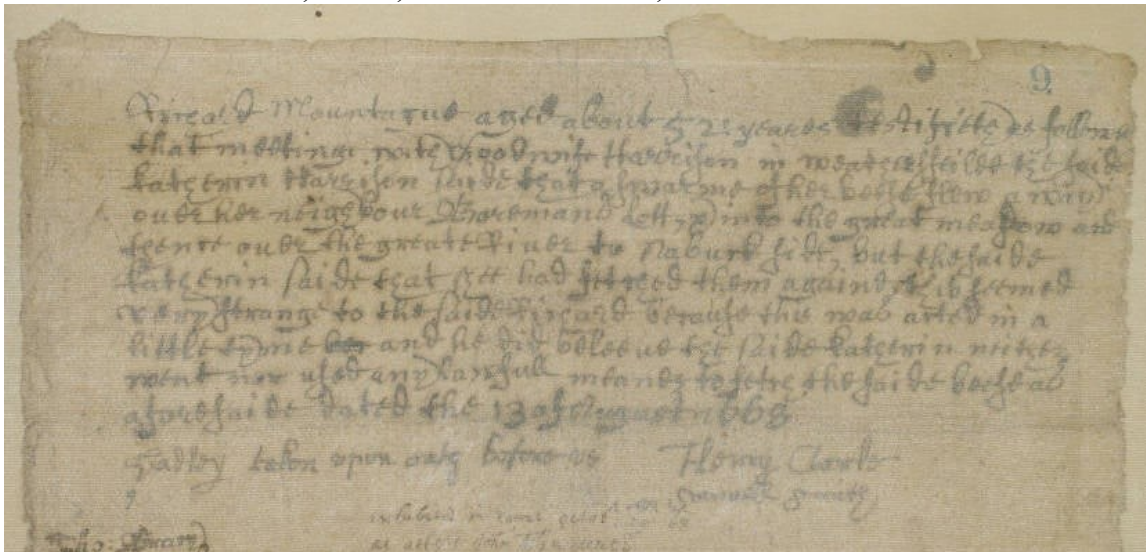 9.
Ricard Mountague aged about 52 yeares testifieth as followes
that meeting with goodwife Harrison in weathersfeild the saide
katherin Harrison saide that a swarme of her beese flew away
over her neighbour Boremans lott and into the great meadow and
thence over the greate River to Nabuck side, but the saide
katherin saide that shee had fetched them againe this seemed
very strange to the saide Ricard because this was acted in a
little tyme and he did beleeve the saide katherin neither
went nor used any lawfull means to fetch the saide beese as
aforesaide dated the 13 of August 1668
Hadley taken upon oath before us Henry Clarke
Samuell Smith
exhibited in court octobr
as attests John